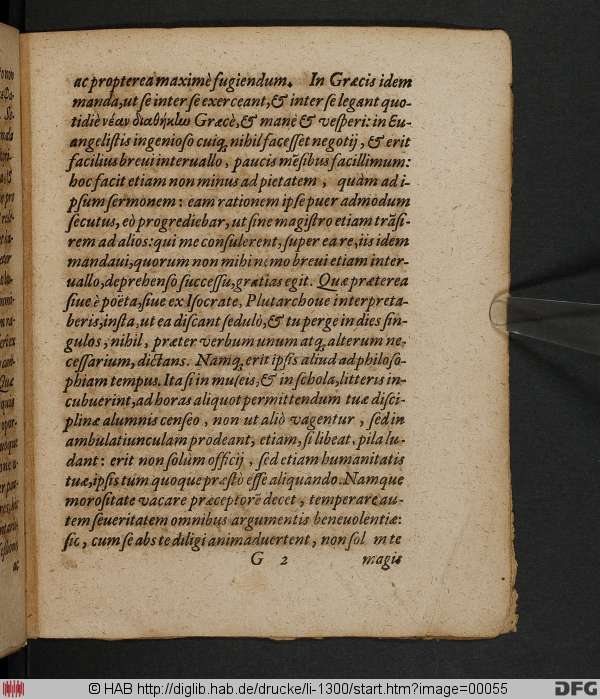 ac propterea maximè fugiendum. In Græcis idem
manda, ut se inter se exerceant, & inter se legant quo-
tidiè νέαν διαθήκην Græcè, & manè & vesperi: in Eu-
angelistis ingenioso cuiq; nihil facesset negotij, & erit
facilius breui interuallo, paucis mẽsibus facillimum:
hoc facit etiam non minus ad pietatem, quàm ad i-
psum sermonem: eam rationem ipse puer admodum
secutus, eò progrediebar, ut sine magistro etiam trãsi-
rem ad alios: qui me consulerent, super ea re, iis idem
mandaui, quorum non mihi nemo breui etiam inter-
uallo, deprehenso successu, gratias egit. Quæ præterea
siue è poëta, siue ex Isocrate, Plutarchoue interpreta-
beris, insta, ut ea discant sedulò, & tu perge in dies sin-
gulos, nihil, præter verbum unum atq; alterum ne-
cessarium, dictans. Namq; erit ipsis aliud ad philoso-
phiam tempus. Ita si in museis, & in schola, litteris in-
cubuerint, ad horas aliquot permittendum tuæ disci-
plinæ alumnis censeo, non ut aliò vagentur, sed in
ambulatiunculam prodeant, etiam, si libeat, pila lu-
dant: erit non solùm officij, sed etiam humanitatis
tuæ, ipsis tum quoque præstò esse aliquando. Namque
morositate vacare præceptorẽ decet, temperare au-
tem seueritatem omnibus argumentis beneuolentiæ:
sic, cum se abs te diligi animaduertent, non sol m te
G 2 magis
© HAB http://diglib.hab.de/drucke/li-1300/start.htm?image=00055
DFG